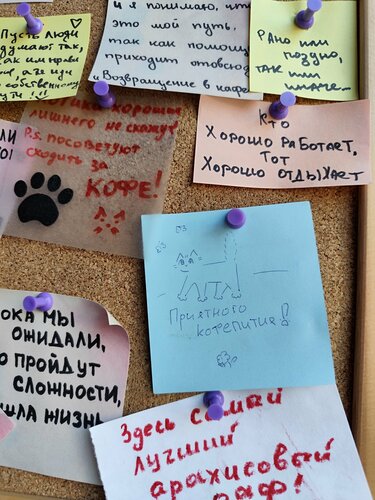 Пусть люди
думают так,
как им нрави
и я понимаю, что
это мой путь,
так как помощь
приходит отовсюд
"Возвращение в кафе
Рано или
поздно,
так или
иначе...
хорошие
лишнего не скажут
P.S. посоветуют
сходить за
КОФЕ!
Кто
Хорошо работает,
Тот
Хорошо отдыхает
Приятного
котепития!
ока мы
ожидали,
о пройдут
сложности,
шла жизнь
Здесь самый
лучший
арахисовый
раф!